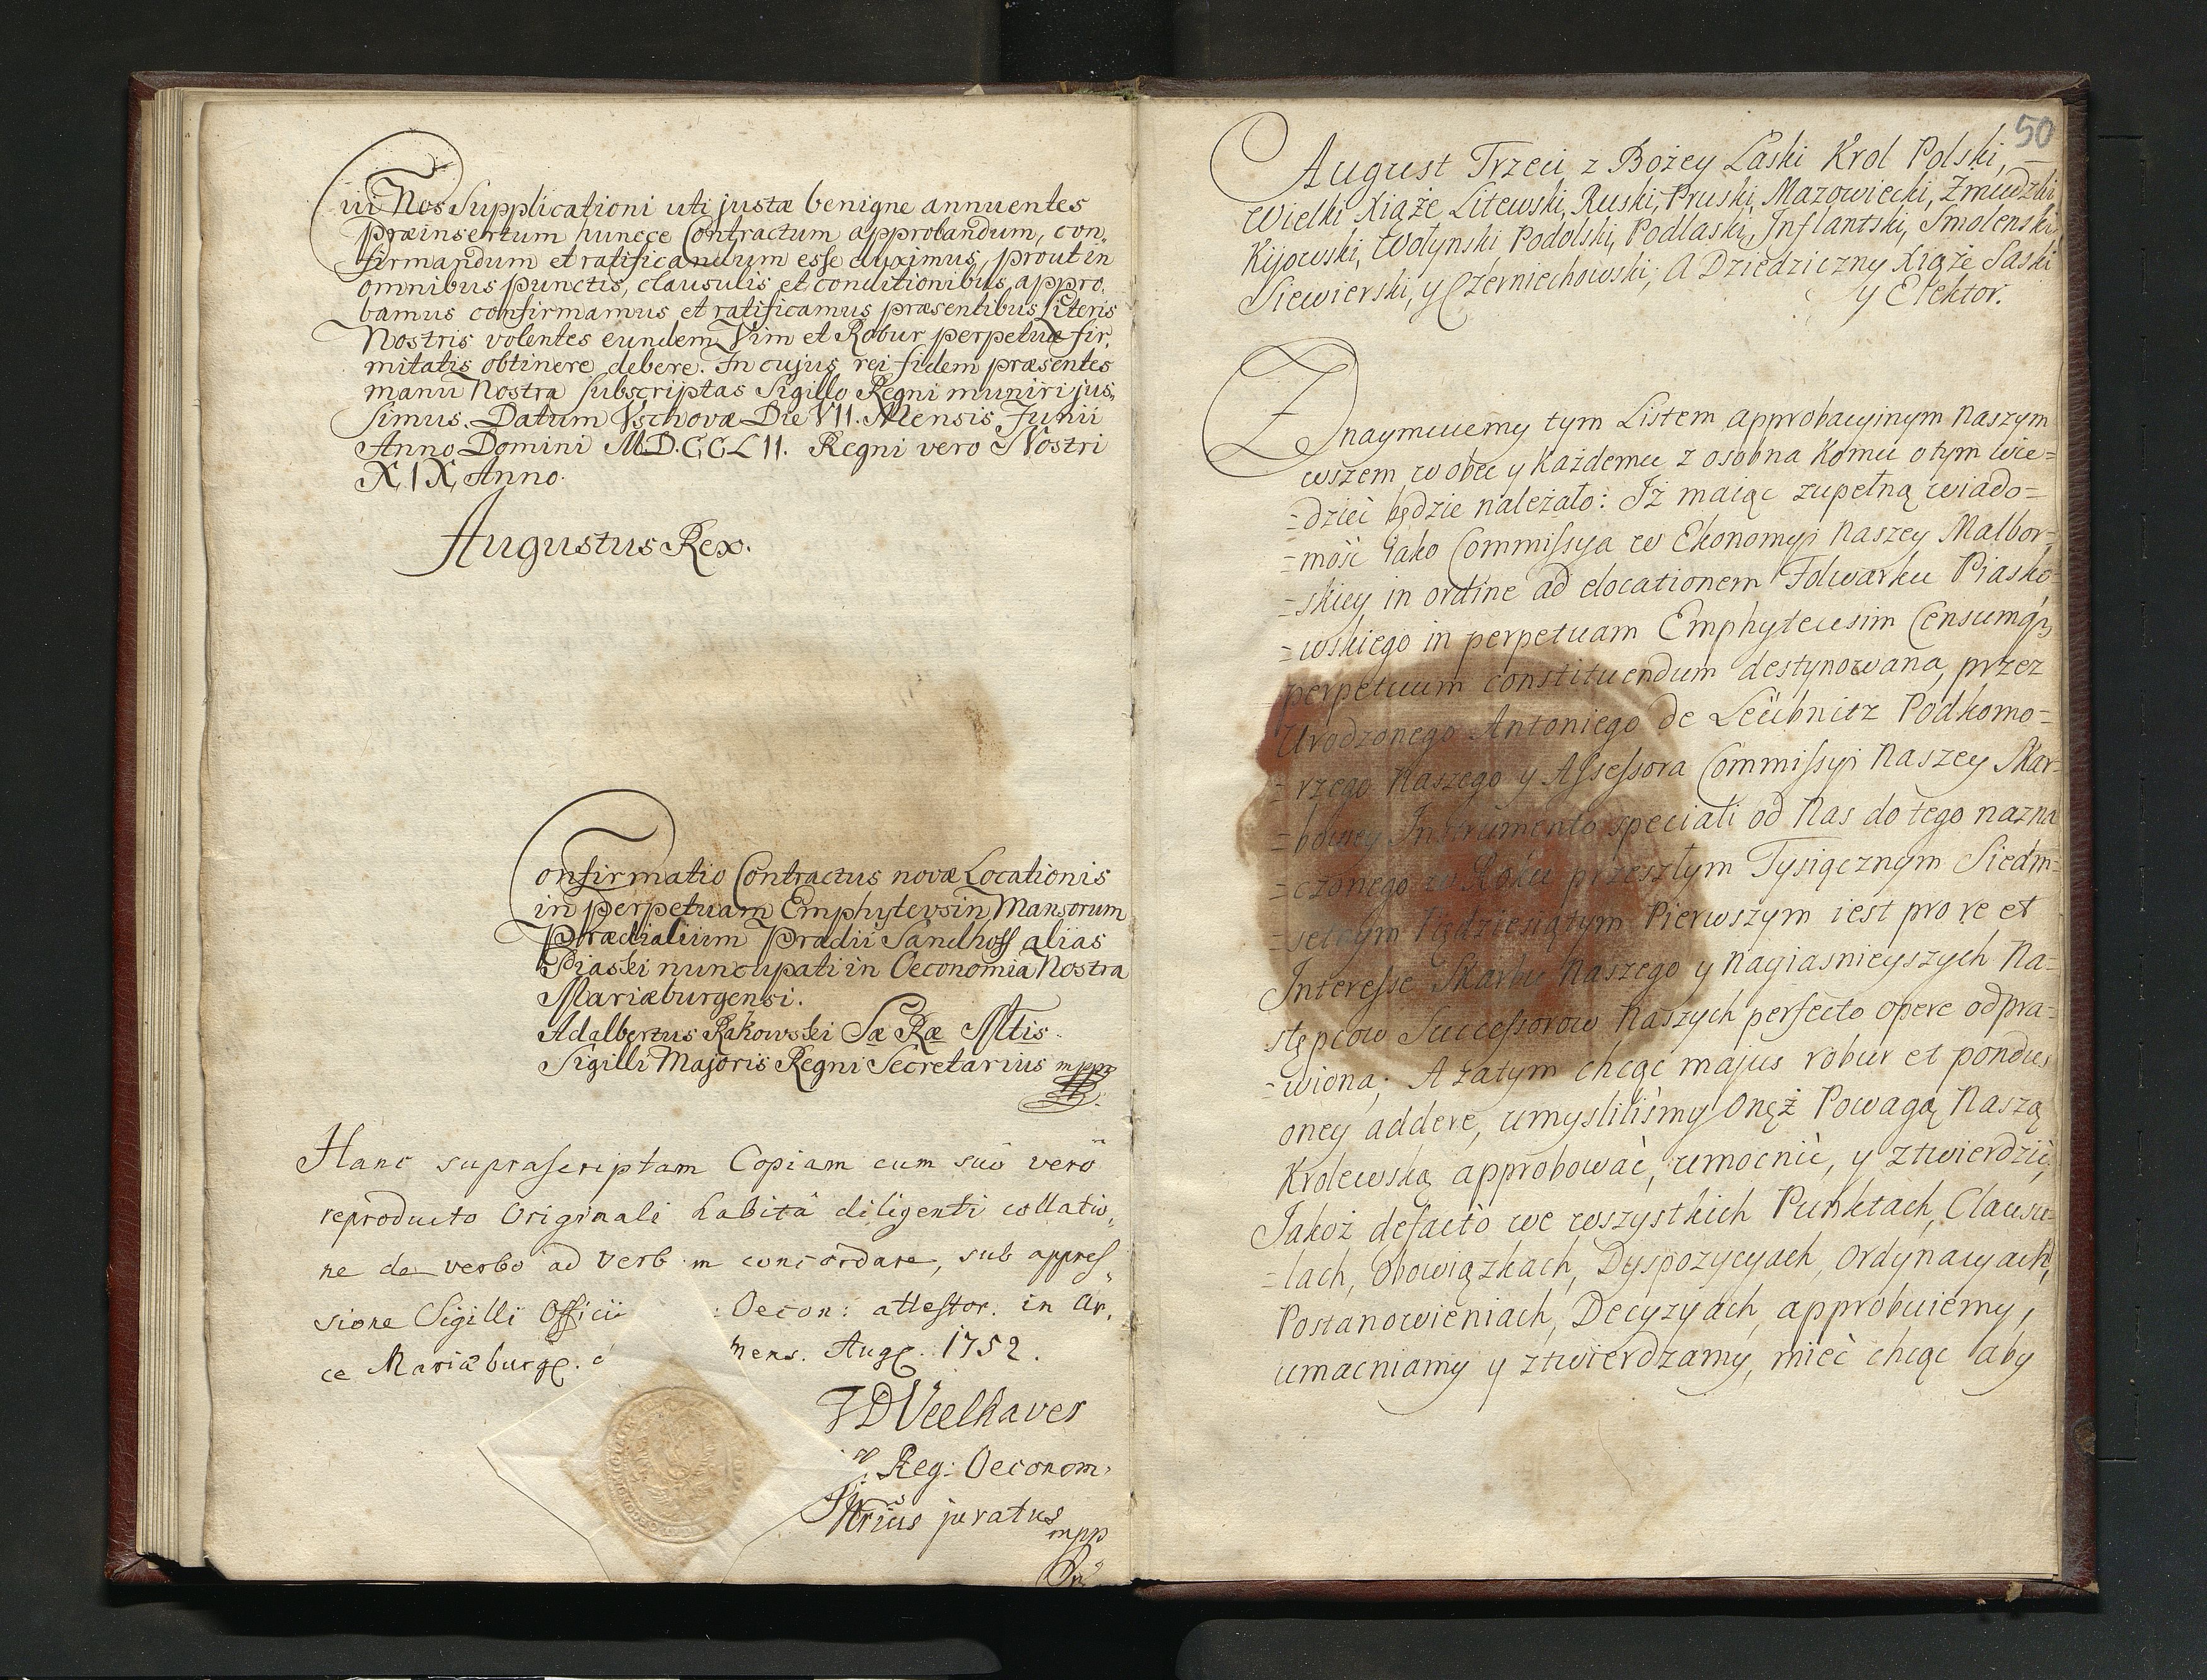 Cui Nos Supplicationi uti justæ benigne annuentes
præinsertum huncce Contractum approbandum, con,
firmandum et ratificandum esse duximus, prout in
omnibus punctis, clausulis et conditionibus appro,
bamus confirmamus et ratificamus præsentibus Literis
Nostris volentes eundem Vim et Robur perpetuæ fir,
mitatis obtinere debere. In cujus rei fidem præsentes
manu Nostra subscriptas Sigillo Regni muniri jus,
simus. Datum Vschovæ Die VII. Mensis Junii
Anno Domini M.D.C.C.L II. Regni vero Nostri
X I X, Anno.
Augustus Rex.
Confirmatio Contractus novæ Locationis
in perpetuam Emphytevsin Mansorum
Prædialium Prædii Sandhoff alias
Piaski nuncupati in Oeconomia Nostra
Mariæburgensi.
Adalbertus Rakowski Sæ Ræ Mtis
Sigilli Majoris Regni Secretarius mppr
Hanc suprascriptam Copiam cum suô verô
reproducto Originali habitâ diligenti collatio,
ne de verbo ad verb m concordare, sub appres,
sione Sigilli Officii : Oecon: attestor. in Ar,
ce Mariæburg. mens. Aug. 1752.
J D Veelhaver
Reg: Oeconom.
juratus
mpp
50
August Trzeci z Bożey Łaski Krol Polski,
Wielki Xiąże Litewski, Ruski, Pruski, Mazowiecki, Zmudzki
Kijowski, Wołynski Podolski, Podlaski, Inflantski, Smolenski
Siewierski, y Czerniechowski; A Dziedziczny Xiąże Saski
y Elektor.
Znaymuiemy tym Listem approbacyinym Naszym
wszem wobec y Każdemu z osobna Komu o tym wie=
=dzieć będzie należało: Iż maiąc zupełną wiado=
=mość iako Commissya w Ekonomyi Naszey Malbor=
=skiey in ordine ad elocationem Folwarku Piasko=
=wskiego in perpetuam Emphyteusim Censumq;
perpetuum constituendum destynowana, przez
Urodzonego Antoniego de Leübnitz Podkomo=
=rzego Naszego y Assessora Commissyi Naszey Skar=
=bowey Instrumento speciali od Nas do tego nazna
=czonego w Roku przeszłym Tysiącznym Siedm=
=setnym Pędziesiątym Pierwszym iest pro re et
Interesse Skarbu Naszego y Nayiasnieyszych Na=
stępcow Successorow Naszych perfecto opere odpra=
=wiona; A zatym chcąc majus robur et pondus
oney addere, umyslilismy Onęż Powagą Naszą
Krolewską approbować, umocnić, y ztwierdzić,
Jakoż defacto we wszystkich Punktach, Clausu=
=lach, Obowiązkach, Dyspozycyach, Ordynacyach,
Postanowieniach, Decyzyach, approbuiemy,
umacniamy y ztwierdzamy, mieć chcąc aby